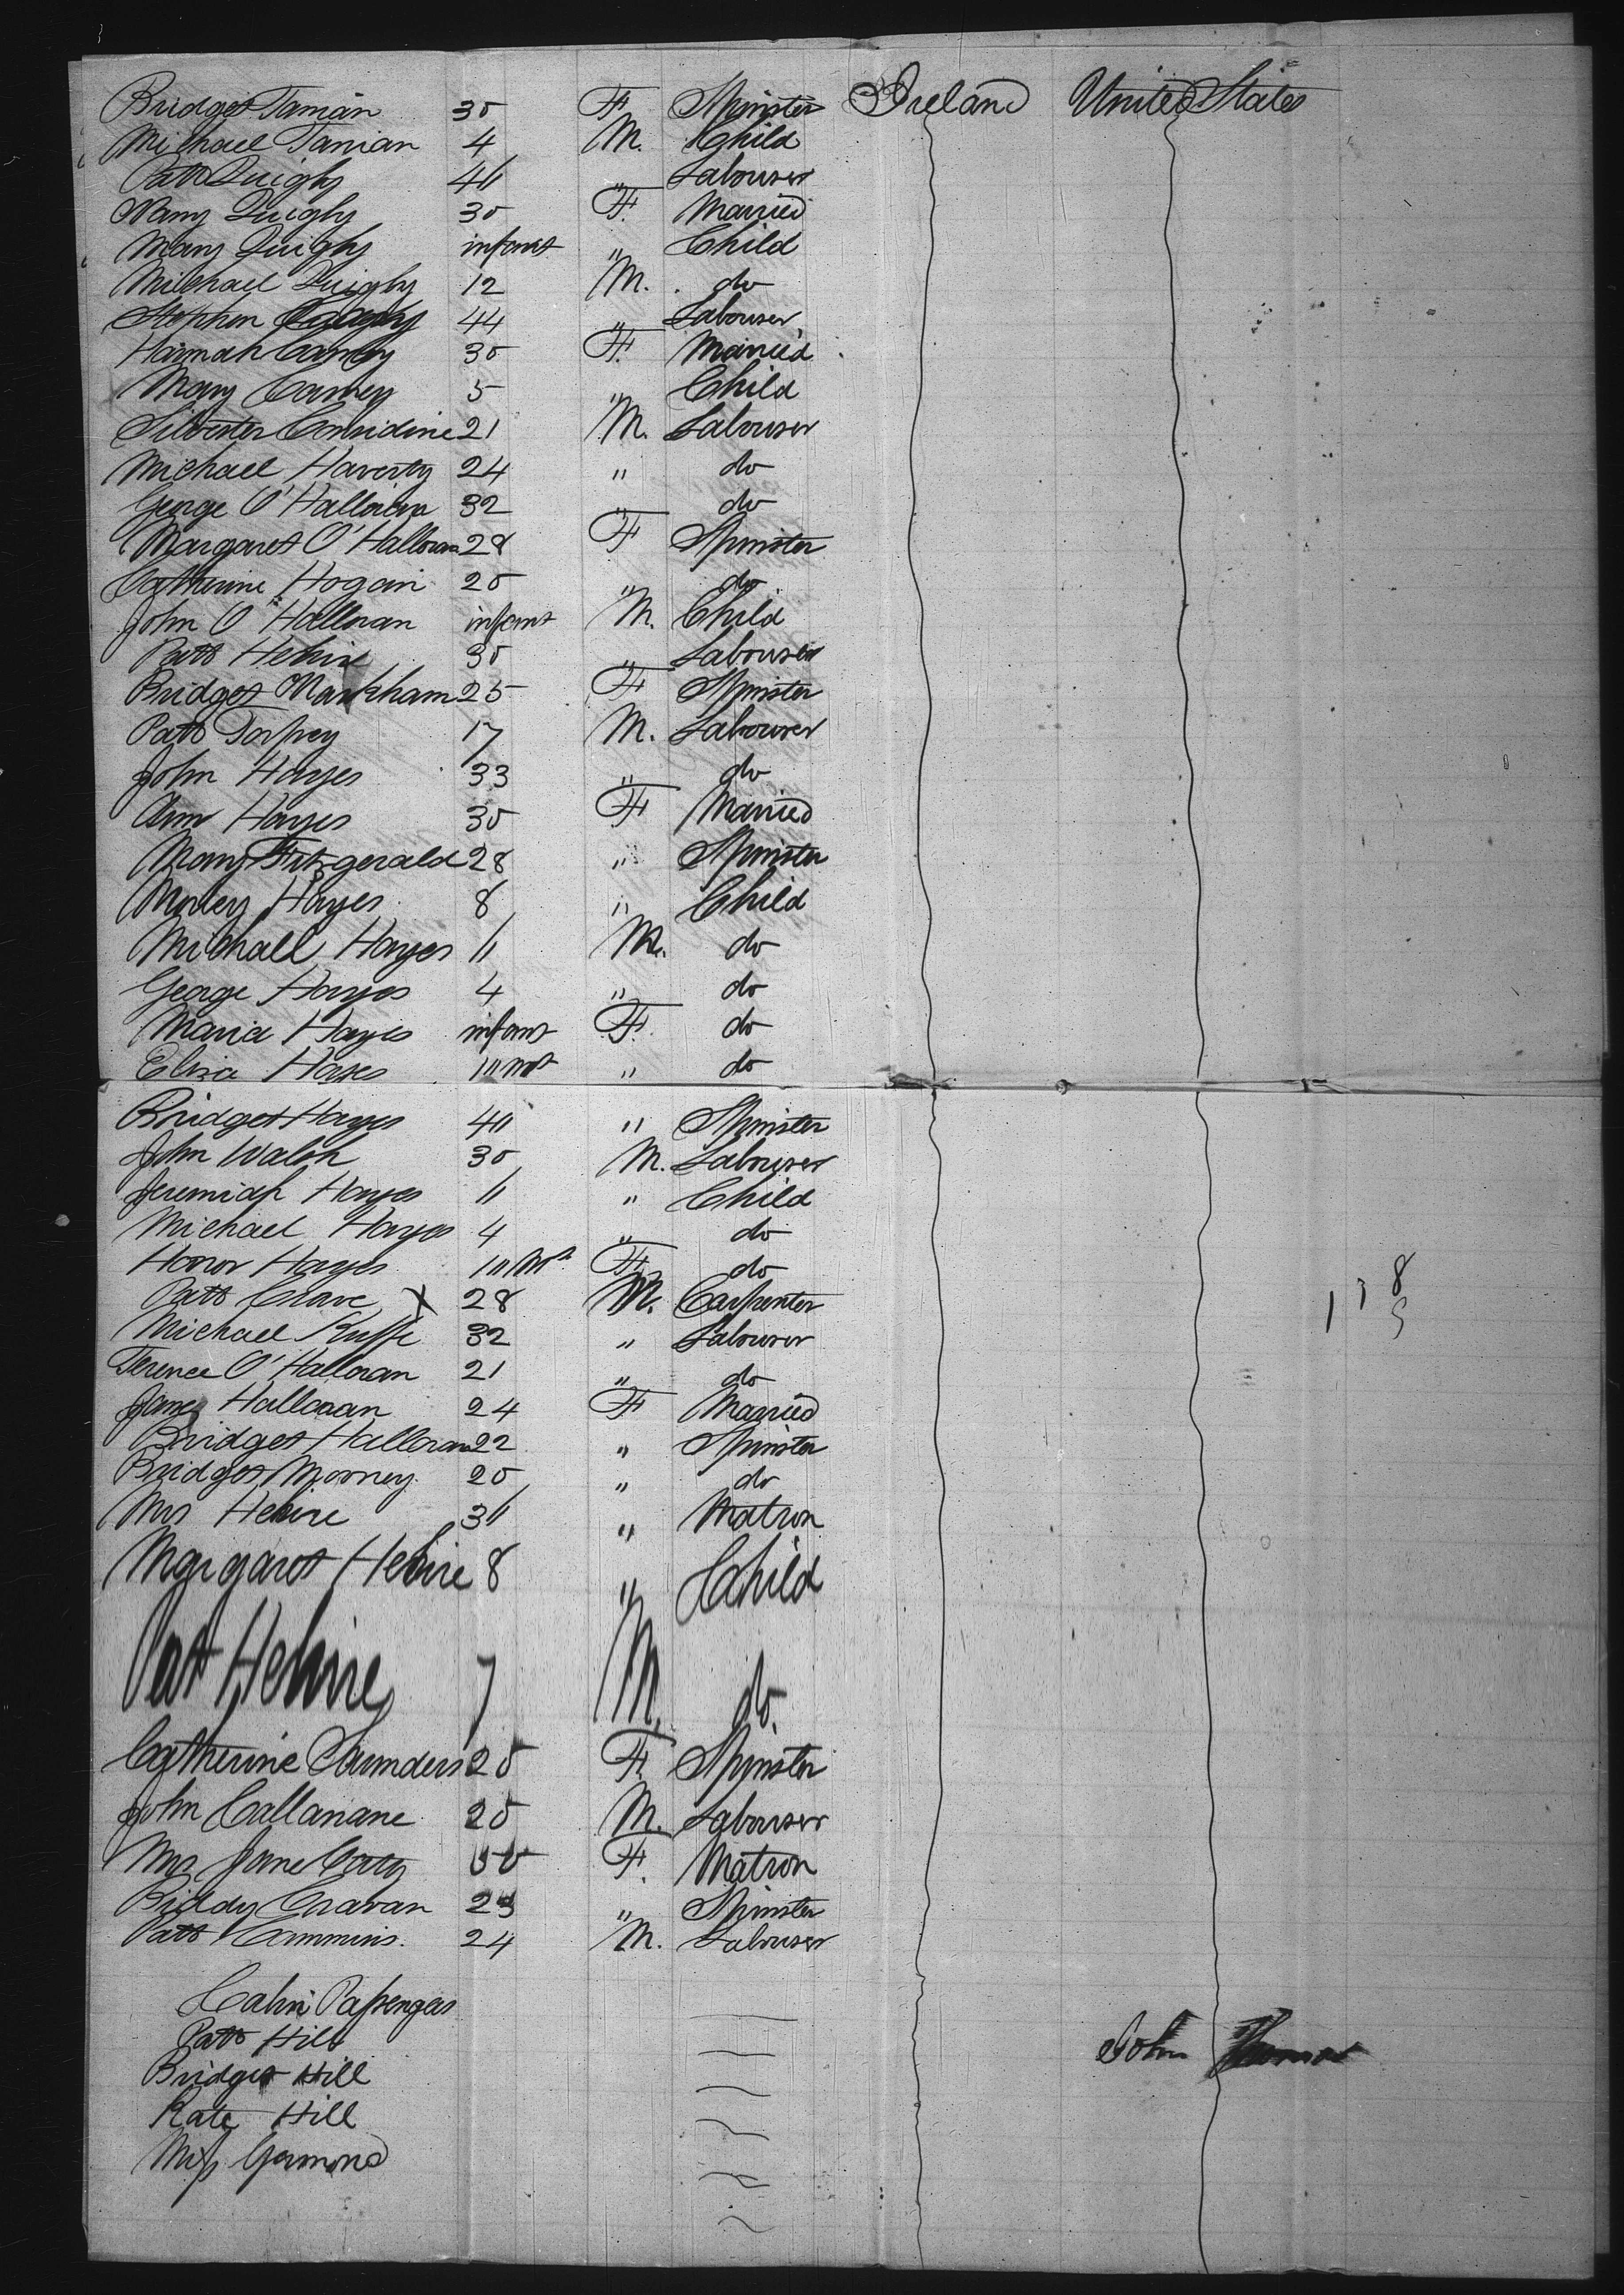 Bridget Tanian 30 F Spinster Ireland United States
Michael Tanian 4 M. Child
Patt Quigly 40 " Labourer
Mary Quigly 30 F. Married
Mary Quigly infant " Child
Michael Quigly 12 M. do
Stephen 44 " Labourer
Hannah Carney 30 F. Married
Mary Carney 5 " Child
Silvester Considine 21 M. Labourer
Michael Haverty 24 " do
George O'Halloran 32 " do
Margaret O'Halloran 28 F Spinster
Catherine Hogan 20 " do
John O'Halloran infant M. Child
Patt Hehire 30 " Labourer
Bridget Markham 25 F Spinster
Patt Torpey 17 M. Labourer
John Hayes 33 " do
Ann Hayes 30 F Married
Mary Fitzgerald 28 " Spinster
Hayes 8 " Child
Michael Hayes 11 M. do
George Hayes 4 " do
Maria Hayes infant F. do
Eliza Hayes " do
Bridget Hayes 40 " Spinster
John Walsh 30 M. Labourer
Jeremiah Hayes 11 " Child
Michael Hayes 4 " do
Honor Hayes F. do
Patt X 28 M. Carpenter
Michael 32 " Labourer
Terence O'Halloran 21 " do
Jane Halloran 24 F Married
Bridget Halloran 22 " Spinster
Bridget Mooney 20 " do
Mrs Hehire 30 " Matron
Margaret Hehire 8 " Child
Pat Hehire 7 M. do
Catherine Saunders 20 F. Spinster
John Callanane 20 M. Labourer
Mrs Jane F. Matron
Biddy Cravan 23 " Spinster
Patt Cummins. 24 M. Labourer
Cabin Passengers
Patt Hill
Bridget Hill
Kate Hill
Miss
John